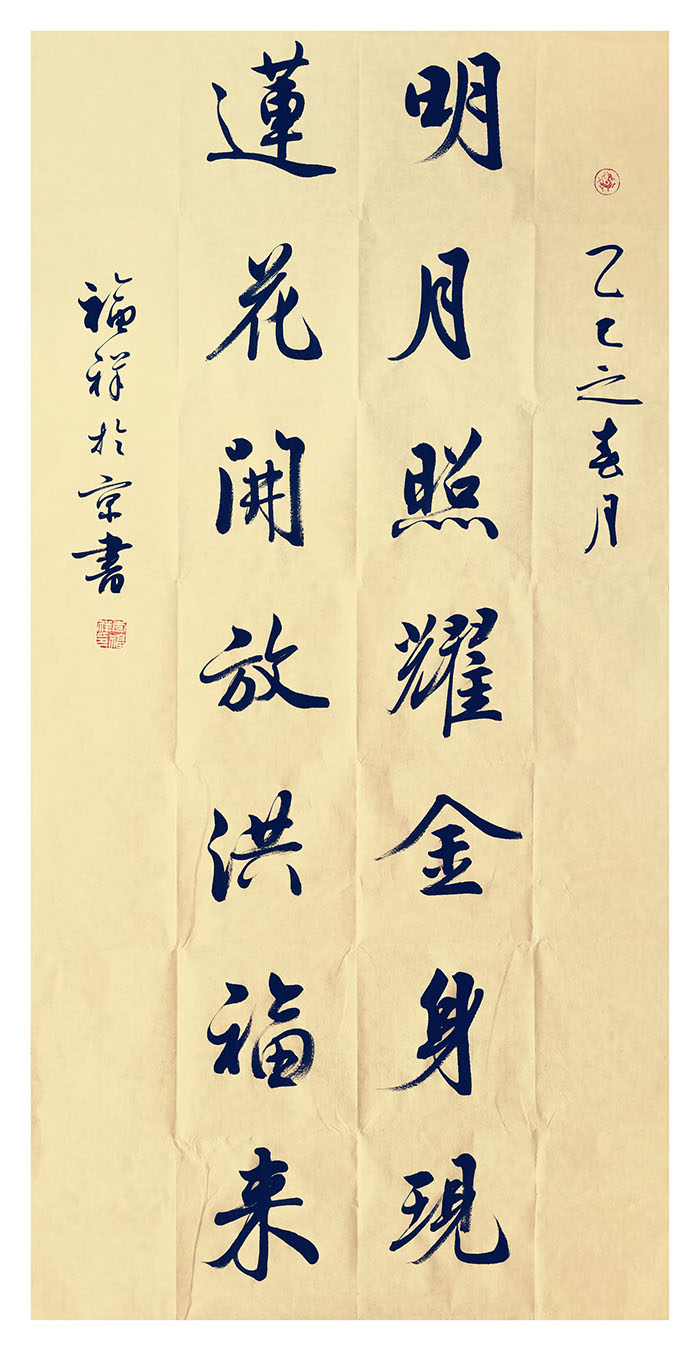 乙巳之春月
明月照耀金身現
蓮花開放洪福来
福祥於京書